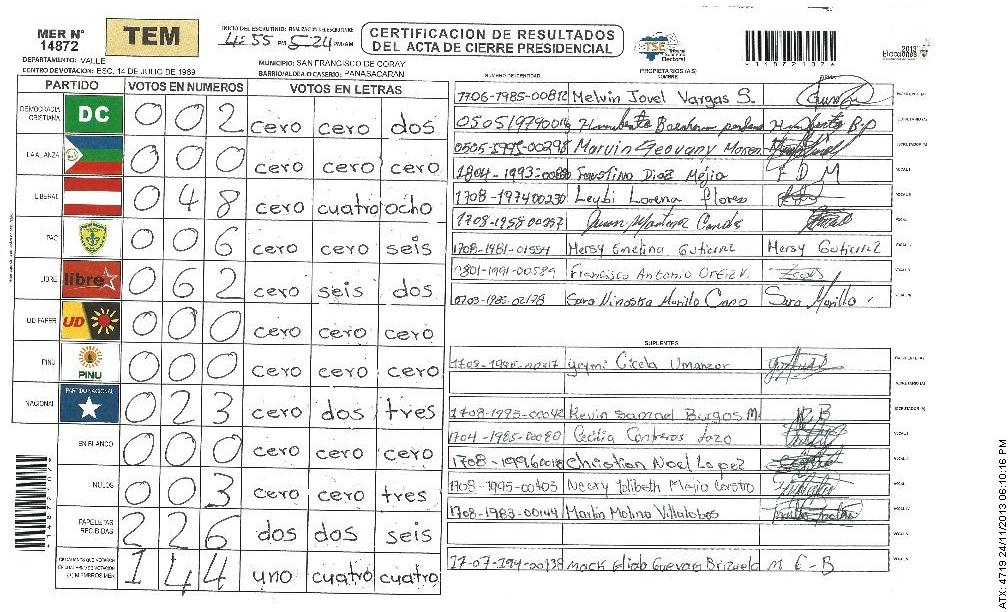 MER N° 14872
TEM
INICIO DEL ESCRUTINIO: FINALIZACION DEL ESCRUTINIO:
4:55 PM 5:24 PM/AM
CERTIFICACION DE RESULTADOS
DEL ACTA DE CIERRE PRESIDENCIAL
TSE Tribunal Supremo Electoral
Elecciones 2013
DEPARTAMENTO: VALLE
MUNICIPIO: SAN FRANCISCO DE CORAY
CENTRO DE VOTACION: ESC. 14 DE JULIO DE 1969
BARRIO/ALDEA O CASERIO: PANASACARAN
NUMERO DE IDENTIDAD
PROPIETARIOS (AS)
NOMBRE
FIRMA
PARTIDO VOTOS EN NUMEROS VOTOS EN LETRAS
DEMOCRACIA CRISTIANA DC 0 0 2 cero cero dos
LA ALIANZA 0 0 0 cero cero cero
LIBERAL 0 4 8 cero cuatro ocho
PAC 0 0 6 cero cero seis
LIBRE libre 0 6 2 cero seis dos
UD FAPER UD 0 0 0 cero cero cero
PINU PINU 0 0 0 cero cero cero
NACIONAL PARTIDO NACIONAL 0 2 3 cero dos tres
EN BLANCO 0 0 0 cero cero cero
NULOS 0 0 3 cero cero tres
PAPELETAS RECIBIDAS 2 2 6 dos dos seis
CIUDADANOS QUE VOTARON
(+) MIEMBROS MER 1 4 4 uno cuatro cuatro
1706-1985-00812 Melvin Jovel Vargas S. PRESIDENTE (A)
Humberto SECRETARIO (A)
Marvin Geovany ESCRUTADOR (A)
1804-1993- Faustino Diaz Mejia F D M VOCAL I
1708-197400230 Leybi Lorena Flores
1708-1958-00257 Martinez
1708-1981-01554 Mersy Emelina Gutierrez Mersy Gutierrez
0801-1991-00589 Francisco Antonio
0703-1985-02178 Sara Ninoska Murillo Sara Murillo
SUPLENTES
Yeymi Cicela Umanzor PRESIDENTE (A)
SECRETARIO (A)
1708-1995-00042 Kevin Samael Burgos M. K B ESCRUTADOR (A)
1704-1985-00080 Cecilia Contreras VOCAL I
Christian Noel Lopez
1708-1995-00403 Mejia
1708-1983-00144 Martin Molina Villalobos
Mack Guevara Brizuela M E-B
ATX: 4719 24/11/2013 06:10:16 PM